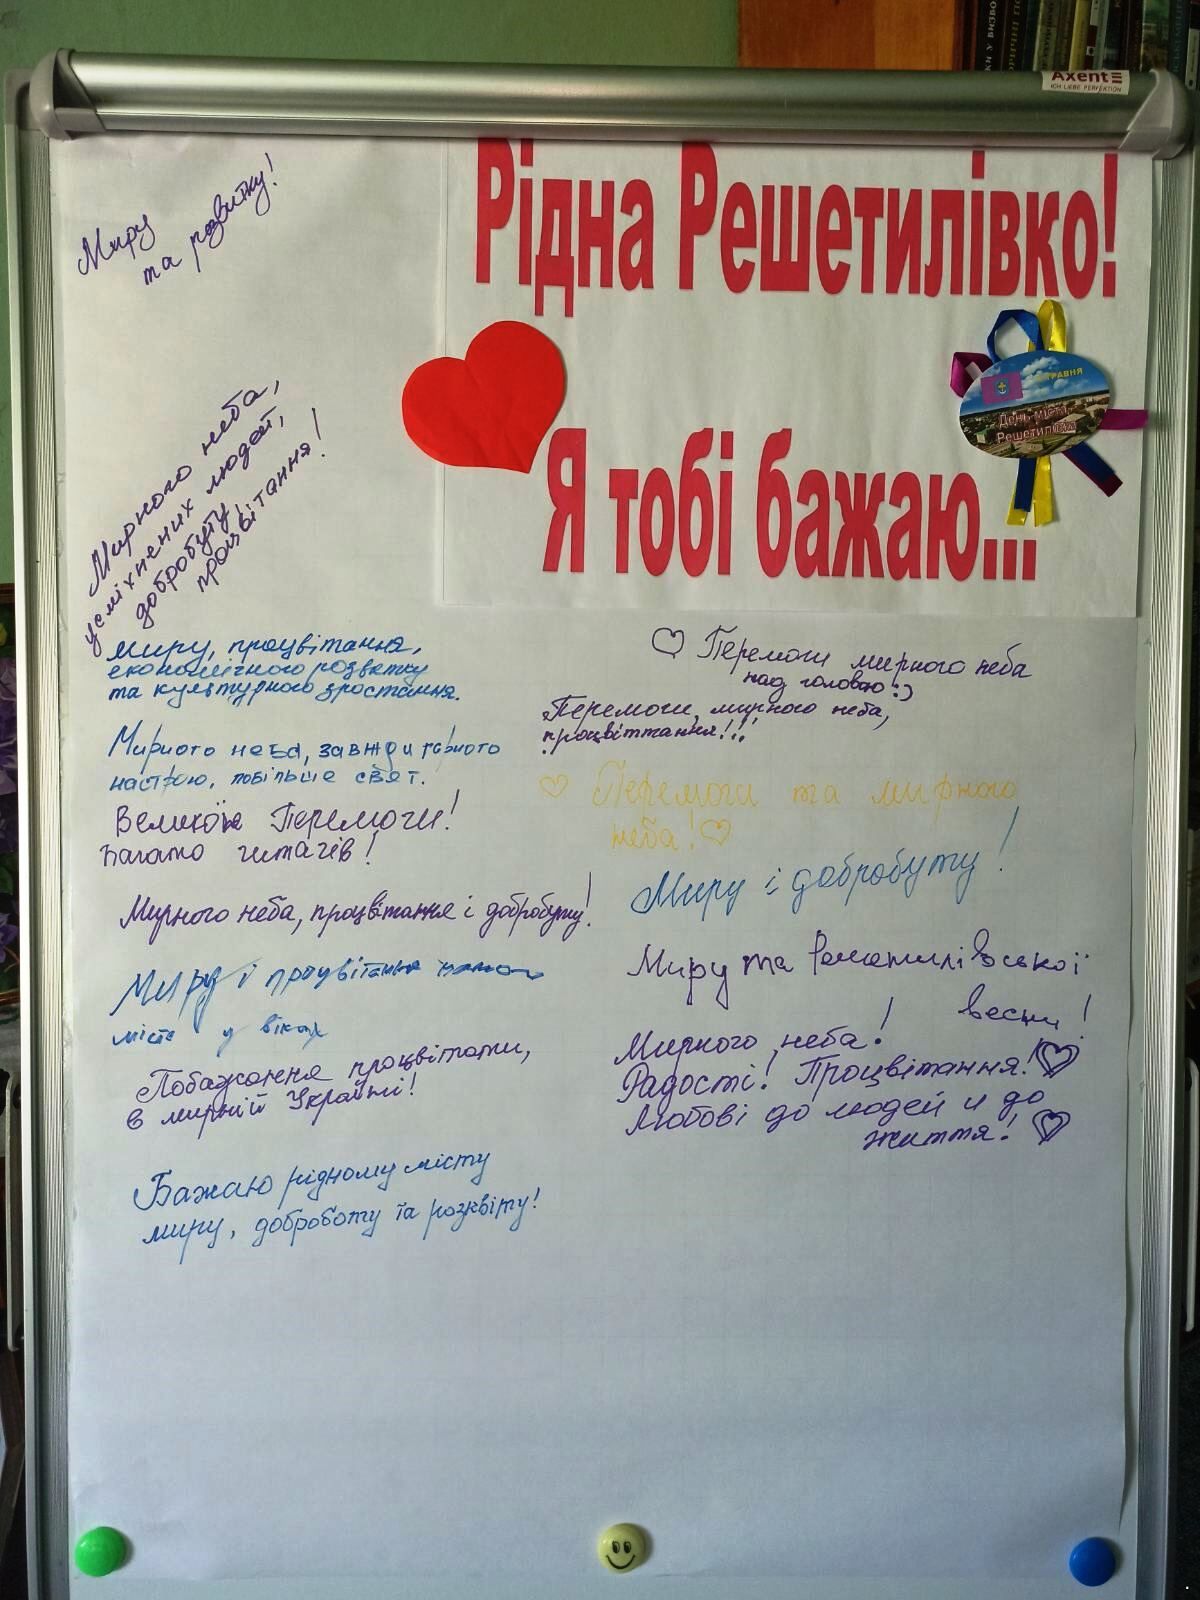 Axent
ICH LIEBE PERFEKTION
Рідна Решетилівко!
Я тобі бажаю...
ТРАВНЯ
День міста
Решетилівка
Миру
та розвитку!
Мирного неба,
усміхнених людей,
добробуту і
процвітання!
Миру, процвітання,
економічного розвитку
та культурного зростання.
Мирного неба, завжди гарного
настрою, побільше свят.
Великої Перемоги!
Багато читачів!
Мирного неба, процвітання і добробуту!
Миру і процвітання
місте у віках
Побажання процвітати,
в мирній Україні!
Бажаю рідному місту
миру, доброботу та розквіту!
Перемоги мирного неба
над головою :)
Перемоги, мирного неба,
процвіттання!!!
Перемоги та мирного
неба!
Миру і добробуту!
Миру та Решетилівської
весни!
Мирного неба!
Радості! Процвітання!
Любові до людей и до
життя!